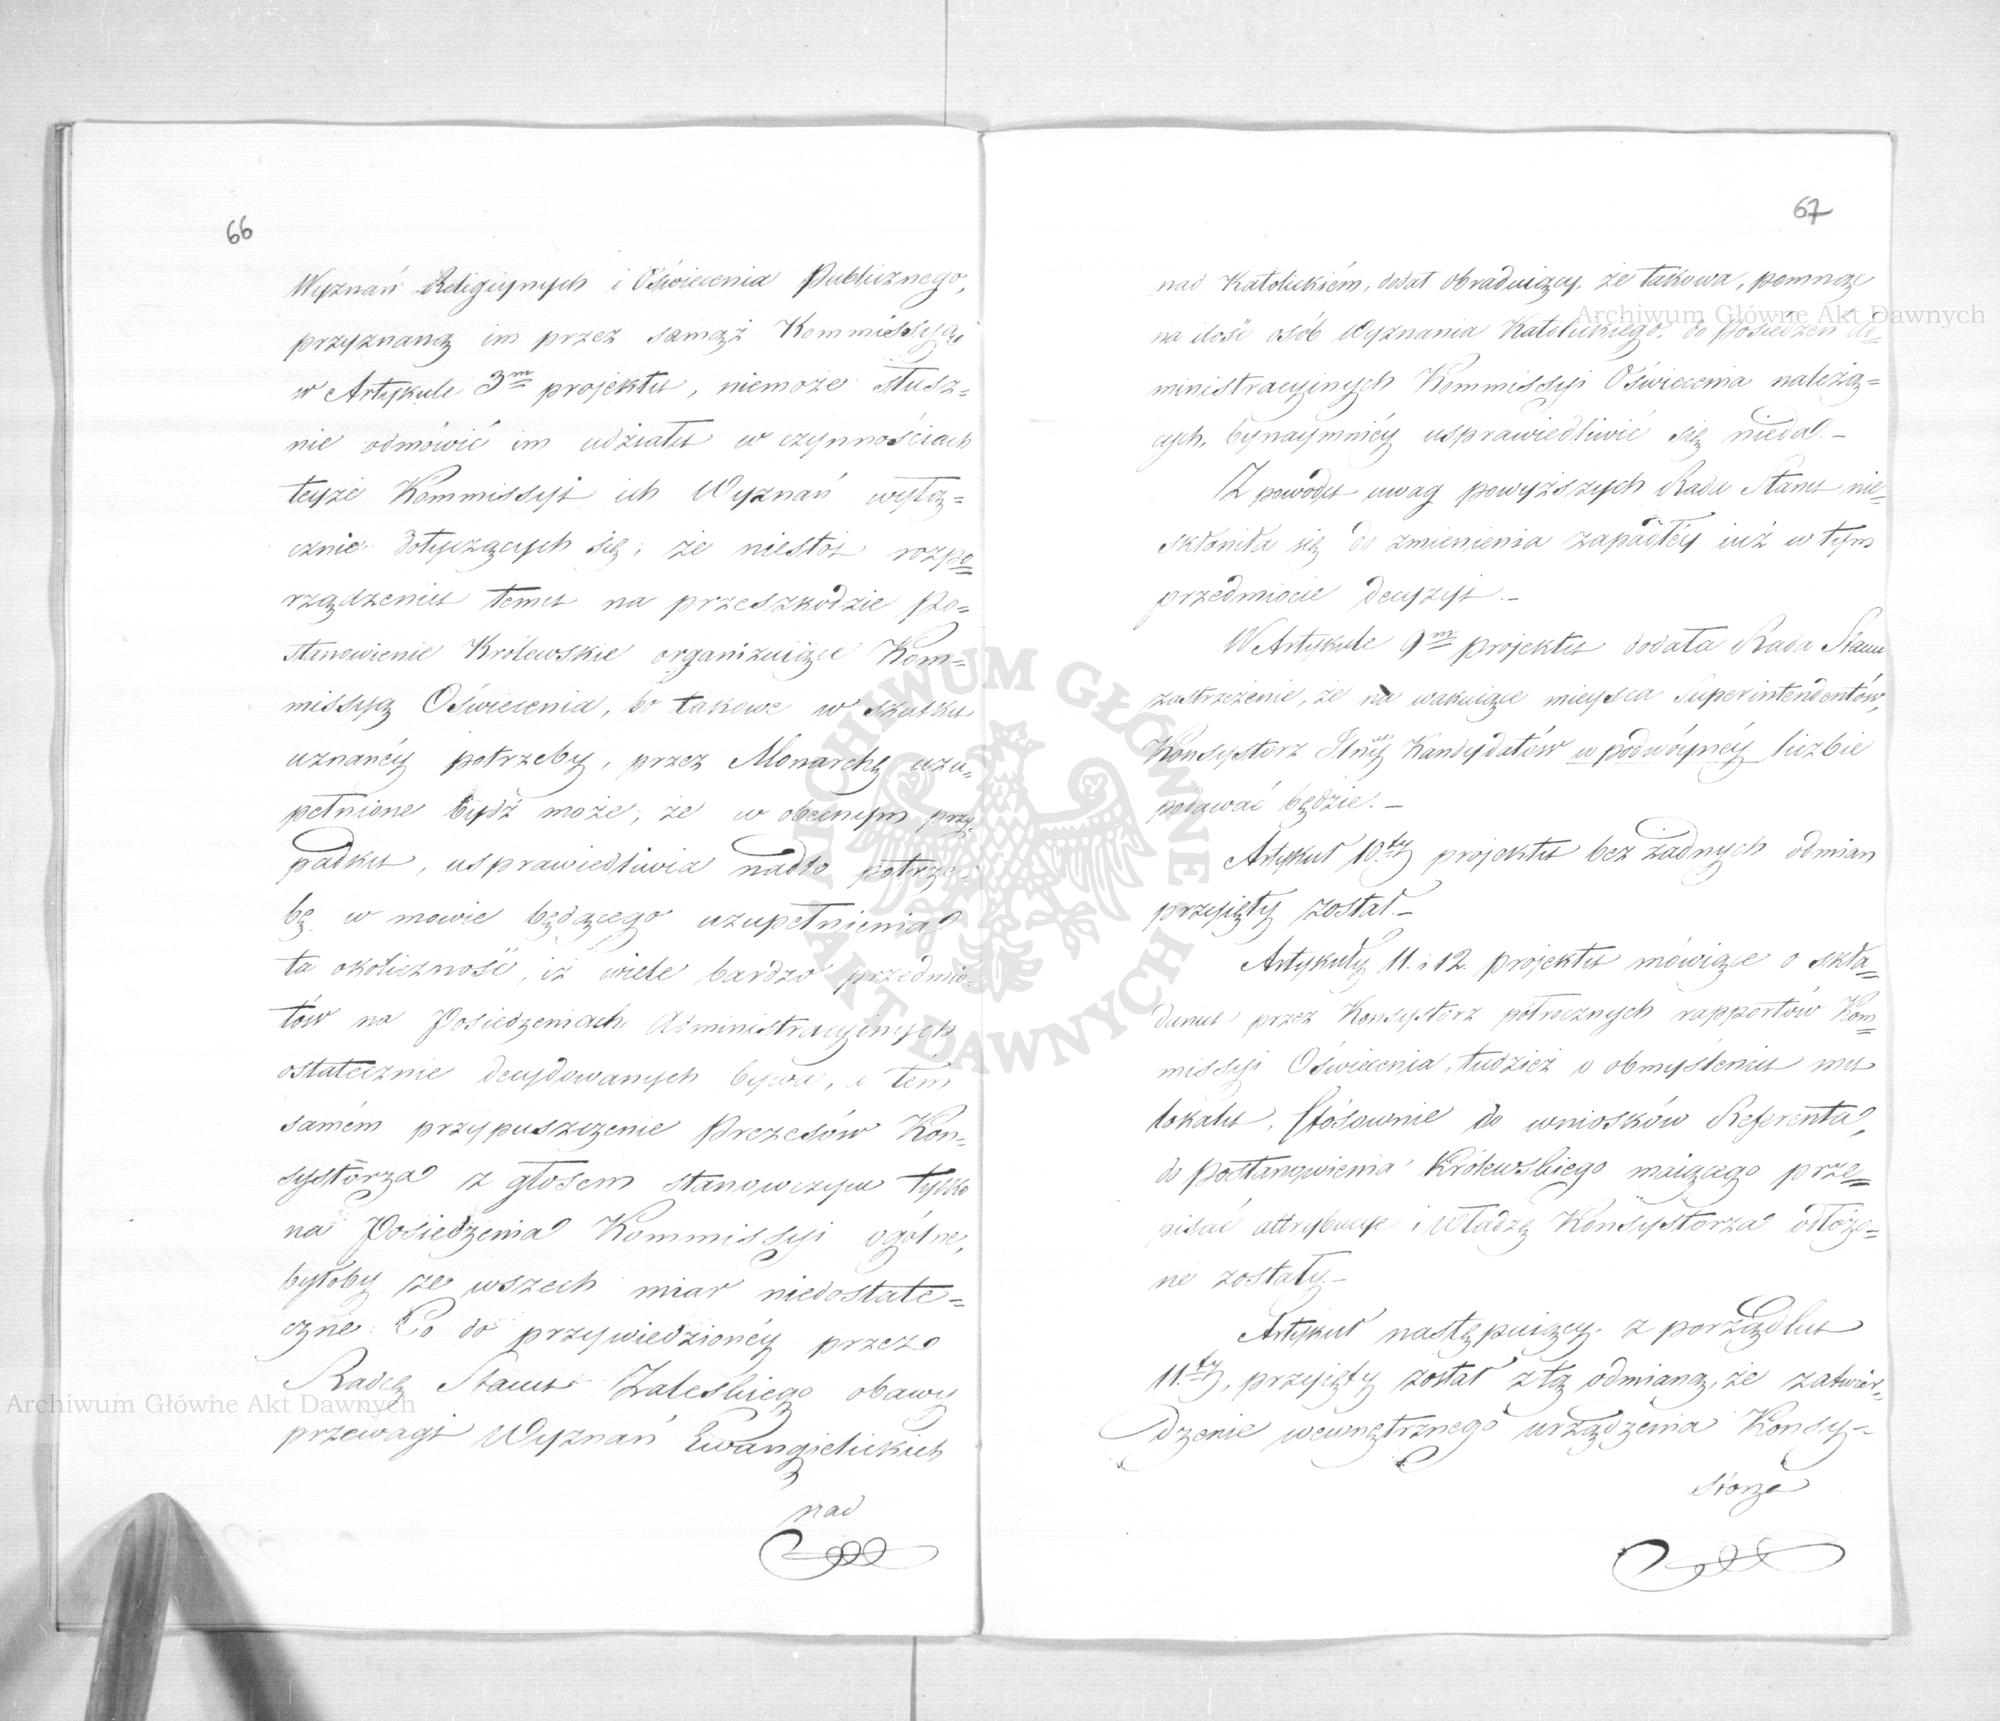 66
Wyznań Religijnych i Oświecenia Publicznego,
przyznaną im przez samąż Kommissyą
w Artykule 3m projektu, niemoże słusz=
nie odmówić im udziału w czynnościach
teyże Kommissyi ich Wyznań wyłą=
cznie dotyczących się; że niestoi rozpo=
rządzeniu temu na przeszkodzie Po=
stanowienie Królewskie organizuiące Kom=
missyą Oświecenia, bo takowe w skutku
uznanéy potrzeby, przez Monarchę uzu=
pełnione bydź może; że w obecnym przy=
padku, usprawiedliwia nadto potrze=
bę w mowie będącego uzupełnienia
ta okoliczność, iż wiele bardzo przedmio=
tów na Posiedzeniach Administracyinych
ostatecznie decydowanych bywa, a tem
samém przypuszczenie Prezesów Kon=
systorza z głosem stanowczym tylko
na Posiedzenia Kommissyi ogólne,
byłoby ze wszech miar niedostate=
czne. Co do przywiedzionéy przez
Radcę Stanu Zaleskiego obawy
przewagi Wyznań Ewangielickich
nad
67
nad Katolickiém, dodał Obraduiący, że takowa, pomnąc
na ilość osób Wyznania Katolickiego, do Posiedzeń Ad=
ministracyjnych Kommissyi Oświecenia należą=
cych, bynaymniéy usprawiedliwić się nieda. –
Z powodu uwag powyższych Rada Stanu nie=
skłoniła się do zmienienia zapadłéy iuż w tym
przedmiocie decyzyi. –
W Artykule 9m projektu dodała Rada Stanu
zastrzeżenie, że na wakuiące mieysca Superintendentów,
Konsystorz Kandydatów w podwóynéy liczbie
podawać będzie. –
Artykuł 10ty projektu bez żadnych odmian
przyięty został. –
Artykuły 11. i 12. projektu mówiące o skła=
daniu przez Konsystorz półrocznych rapportów Kom=
missyi Oświecenia, tudzież o obmyśleniu mu
lokalu, stósownie do wniosków Referenta,
do Postanowienia Królewskiego maiącego prze=
pisać attrybucye i Władzę Konsystorza odłożo=
ne zostały. –
Artykuł następuiący z porządku
11ty, przyięty został z tą odmianą, że zatwier=
dzenie wewnętrznego urządzenia Konsy=
storza
Archiwum Główne Akt Dawnych
Archiwum Główne Akt Dawnych
ARCHIWUM GŁÓWNE AKT DAWNYCH